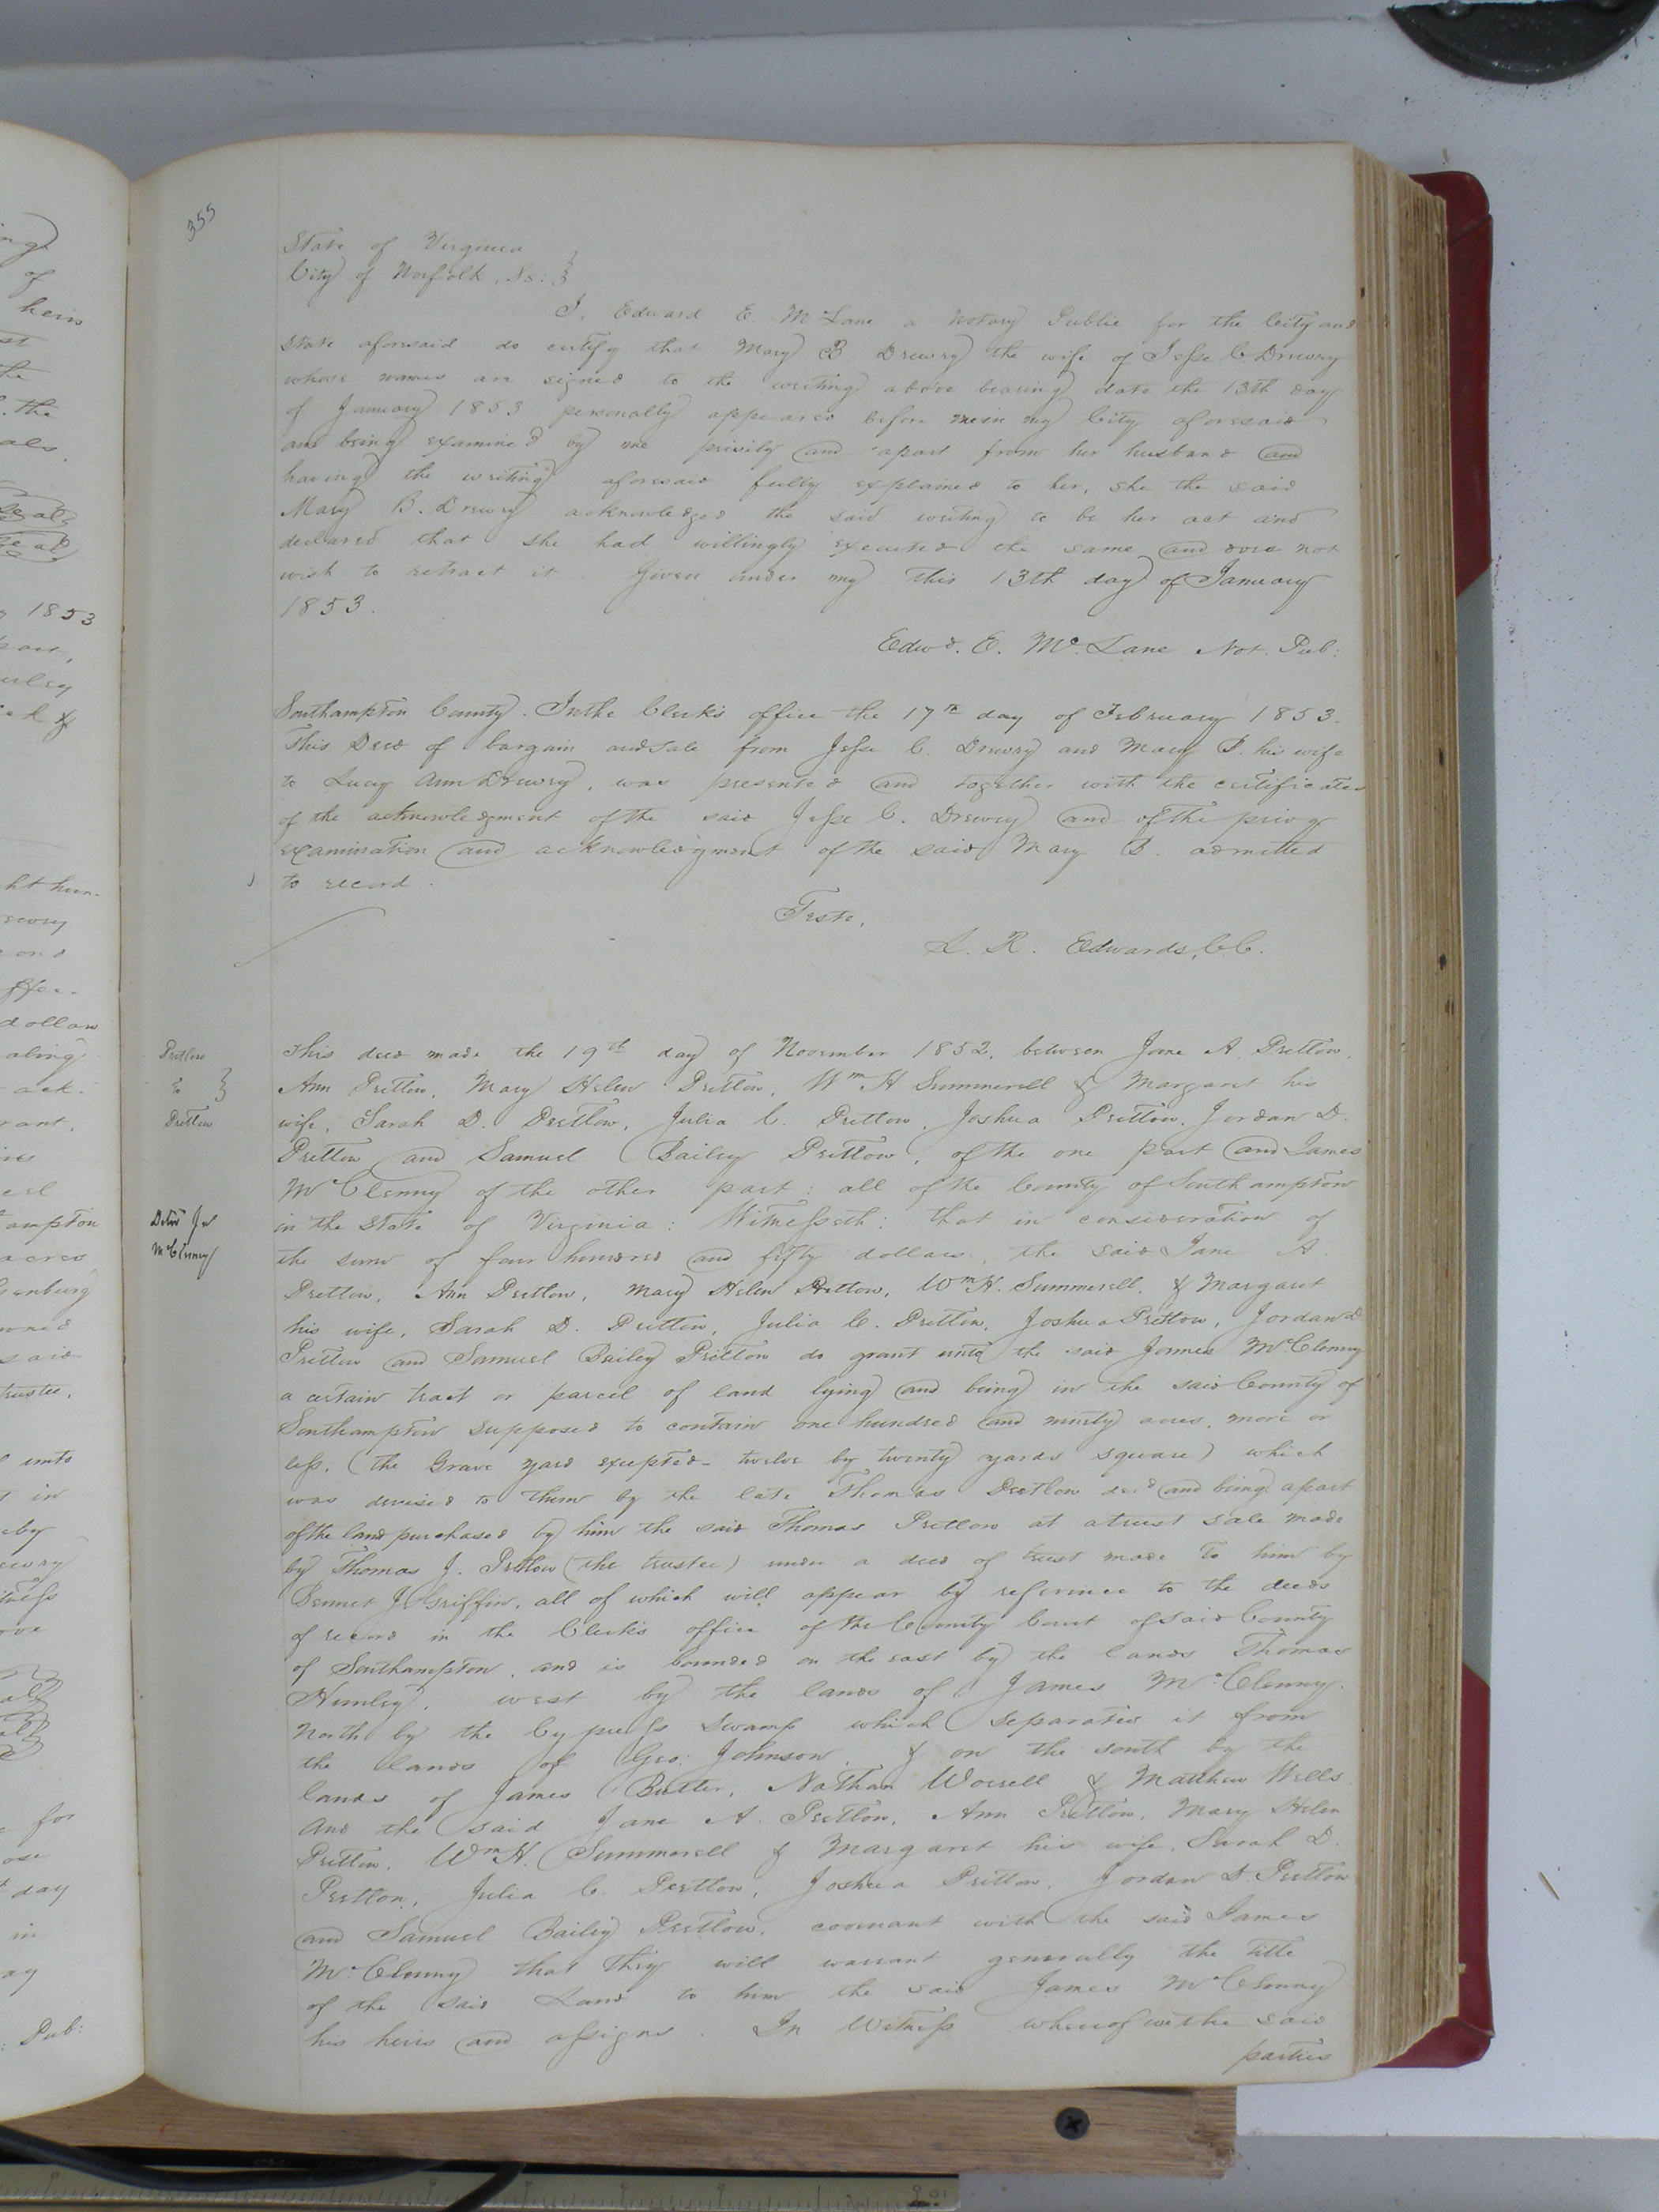 355
State of Virginia
City of Norfolk, Ss:
I, Edward E. McLane a Notary Public for the City and
State aforesaid do certify that Mary B Drewry the wife of Jesse C Drewry
whose names are signed to the writing above bearing date the 13th day
of January 1853 personally appeared before me in my City aforesaid
and being examined by me privily and apart from her husband and
having the writing aforesaid fully explained to her, she the said
Mary B. Drewry acknowledged the said writing to be her act and
declared that she had willingly executed the same and does not
wish to retract it. Given under my this 13th day of January
1853.
Edwd. E. McLane Not. Pub:
Southampton County. In the Clerk's office the 17th day of February 1853.
This Deed of bargain and sale from Jesse C. Drewry and Mary B. his wife
to Lucy Ann Drewry, was presented and together with the certificates
of the acknowledgment of the said Jesse C. Drewry and of the privy
examination and acknowledgment of the said Mary B. admitted
to record.
Teste,
L. R. Edwards, C.C.
Pretlow
to
Pretlow
Deld Jas
McClenny
This deed made the 19th day of November 1852, between Jane A. Pretlow,
Ann Pretlow, Mary Helen Pretlow, Wm H Summerell & Margaret his
wife, Sarah D. Pretlow, Julia C. Pretlow, Joshua Pretlow, Jordan D.
Pretlow and Samuel Bailey Pretlow, of the one part and James
McClenny of the other part: all of the County of Southampton
in the State of Virginia: Witnesseth: that in consideration of
the sum of four hundred and fifty dollars, the said Jane A.
Pretlow, Ann Pretlow, Mary Helen Pretlow, Wm H. Summerell, & Margaret
his wife, Sarah D. Pretlow, Julia C. Pretlow, Joshua Pretlow, Jordan D
Pretlow and Samuel Bailey Pretlow do grant unto the said James McClenny
a certain tract or parcel of land lying and being in the said County of
Southampton supposed to contain one hundred and ninety acres, more or
less, (the Grave yard excepted - twelve by twenty yards square) which
was devised to them by the late Thomas Pretlow decd and being a part
of the land purchased by him the said Thomas Pretlow at a trust sale made
by Thomas J. Pretlow (the trustee) under a deed of trust made to him by
Bennet J. Griffin, all of which will appear by reference to the deeds
of record in the Clerk's office of the County Court of said County
of Southampton, and is bounded on the east by the lands Thomas
Humley, west by the lands of James McClenny.
North by the Cypress Swamp which separates it from
the lands of Geo: Johnson, & on the south by the
lands of James Butler, Nathan Worrell & Matthew Wells
And the said Jane A. Pretlow, Ann Pretlow, Mary Helen
Pretlow, Wm H. Summerell & Margaret his wife, Sarah D.
Pretlow, Julia C. Pretlow, Joshua Pretlow, Jordan D. Pretlow
and Samuel Bailey Pretlow, covenant with the said James
McClenny that they will warrant generally the title
of the said Land to him the said James McClenny
his heirs and assigns. In Witness whereof we the said
parties